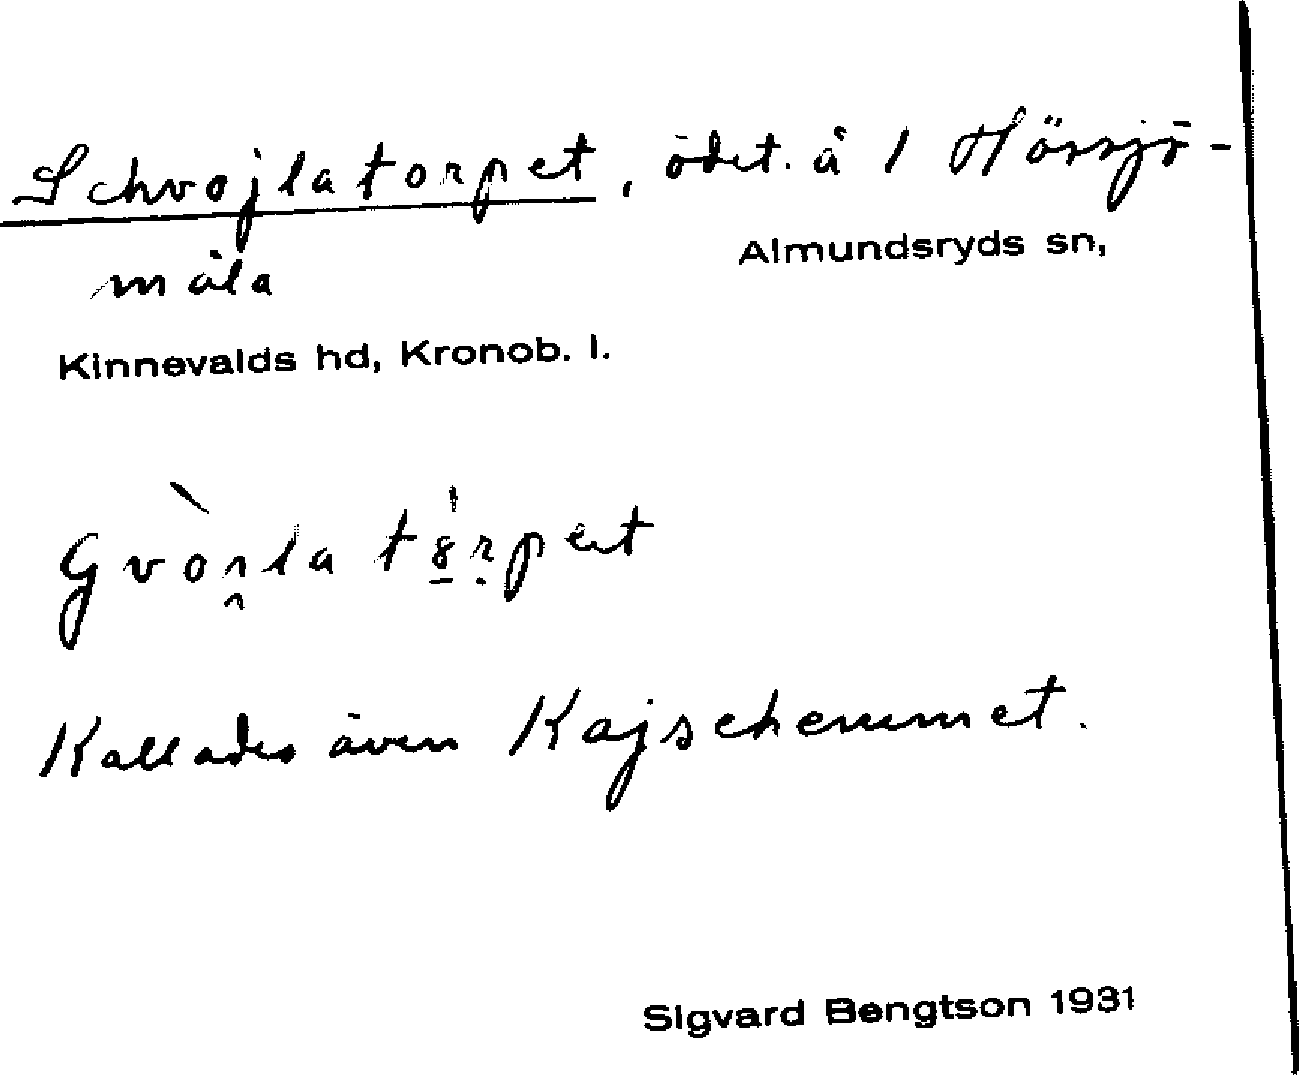 Schvojlatorpet, ödet. å 1 Hörsjö-
måla
Almundsryds sn,
Kinnevalds hd, Kronob. l.
Kallades även Kajschemmet.
Sigvard Bengtson 1931